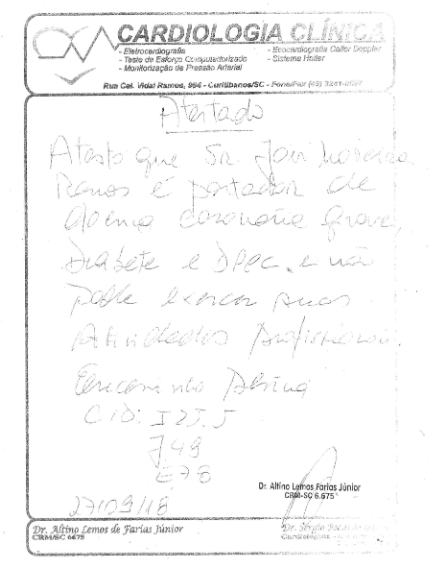 CARDIOLOGIA CLÍNICA
- Eletrocardiografia
- Teste de Esforço Computadorizado
- Monitorização da Pressão Arterial
- Ecocardiografia Color Doppler
- Sistema Holter
Rua Cel. Vidal Ramos, 964 - Curitibanos/SC - Fone/Fax (49)
Atestado
Atesto que Sr.
Ramos é portador de
doença coronária grave,
Diabete e DPOC, e não
pode exercer suas
Atividades profissionais.
CID: I 25.5
J 49
E78
27/09/18
Dr. Altino Lemos Farias Júnior
CRM-SC 6.675
Dr. Altino Lemos de Farias Júnior
CRM/SC 6675
Dr. Sérgio